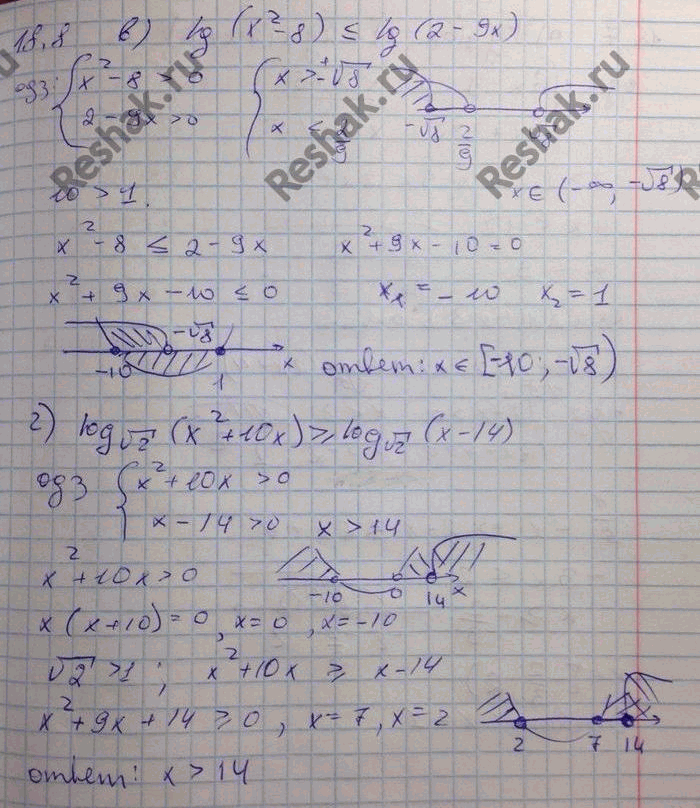 18.8 в) lg (x²-8) ≤ lg (2-9x)
одз: { x²-8 > 0 { x > ±√8
2-9x > 0 x ≤ 2/9
-√8 2/9 √8
10 > 1. x ∈ (-∞, -√8)
x²-8 ≤ 2-9x x²+9x-10=0
x²+9x-10 ≤ 0 x₁=-10 x₂=1
-10 -√8 1 x ответ: x ∈ [-10; -√8)
г) log√2 (x²+10x) ≥ log√2 (x-14)
одз { x²+10x > 0
x-14 > 0 x > 14
x²+10x > 0 -10 0 14 x
x(x+10)=0, x=0, x=-10
√2 > 1; x²+10x ≥ x-14
x²+9x+14 ≥ 0, x=7, x=2 2 7 14
ответ: x > 14
Reshak.ru
Reshak.ru
Reshak.ru